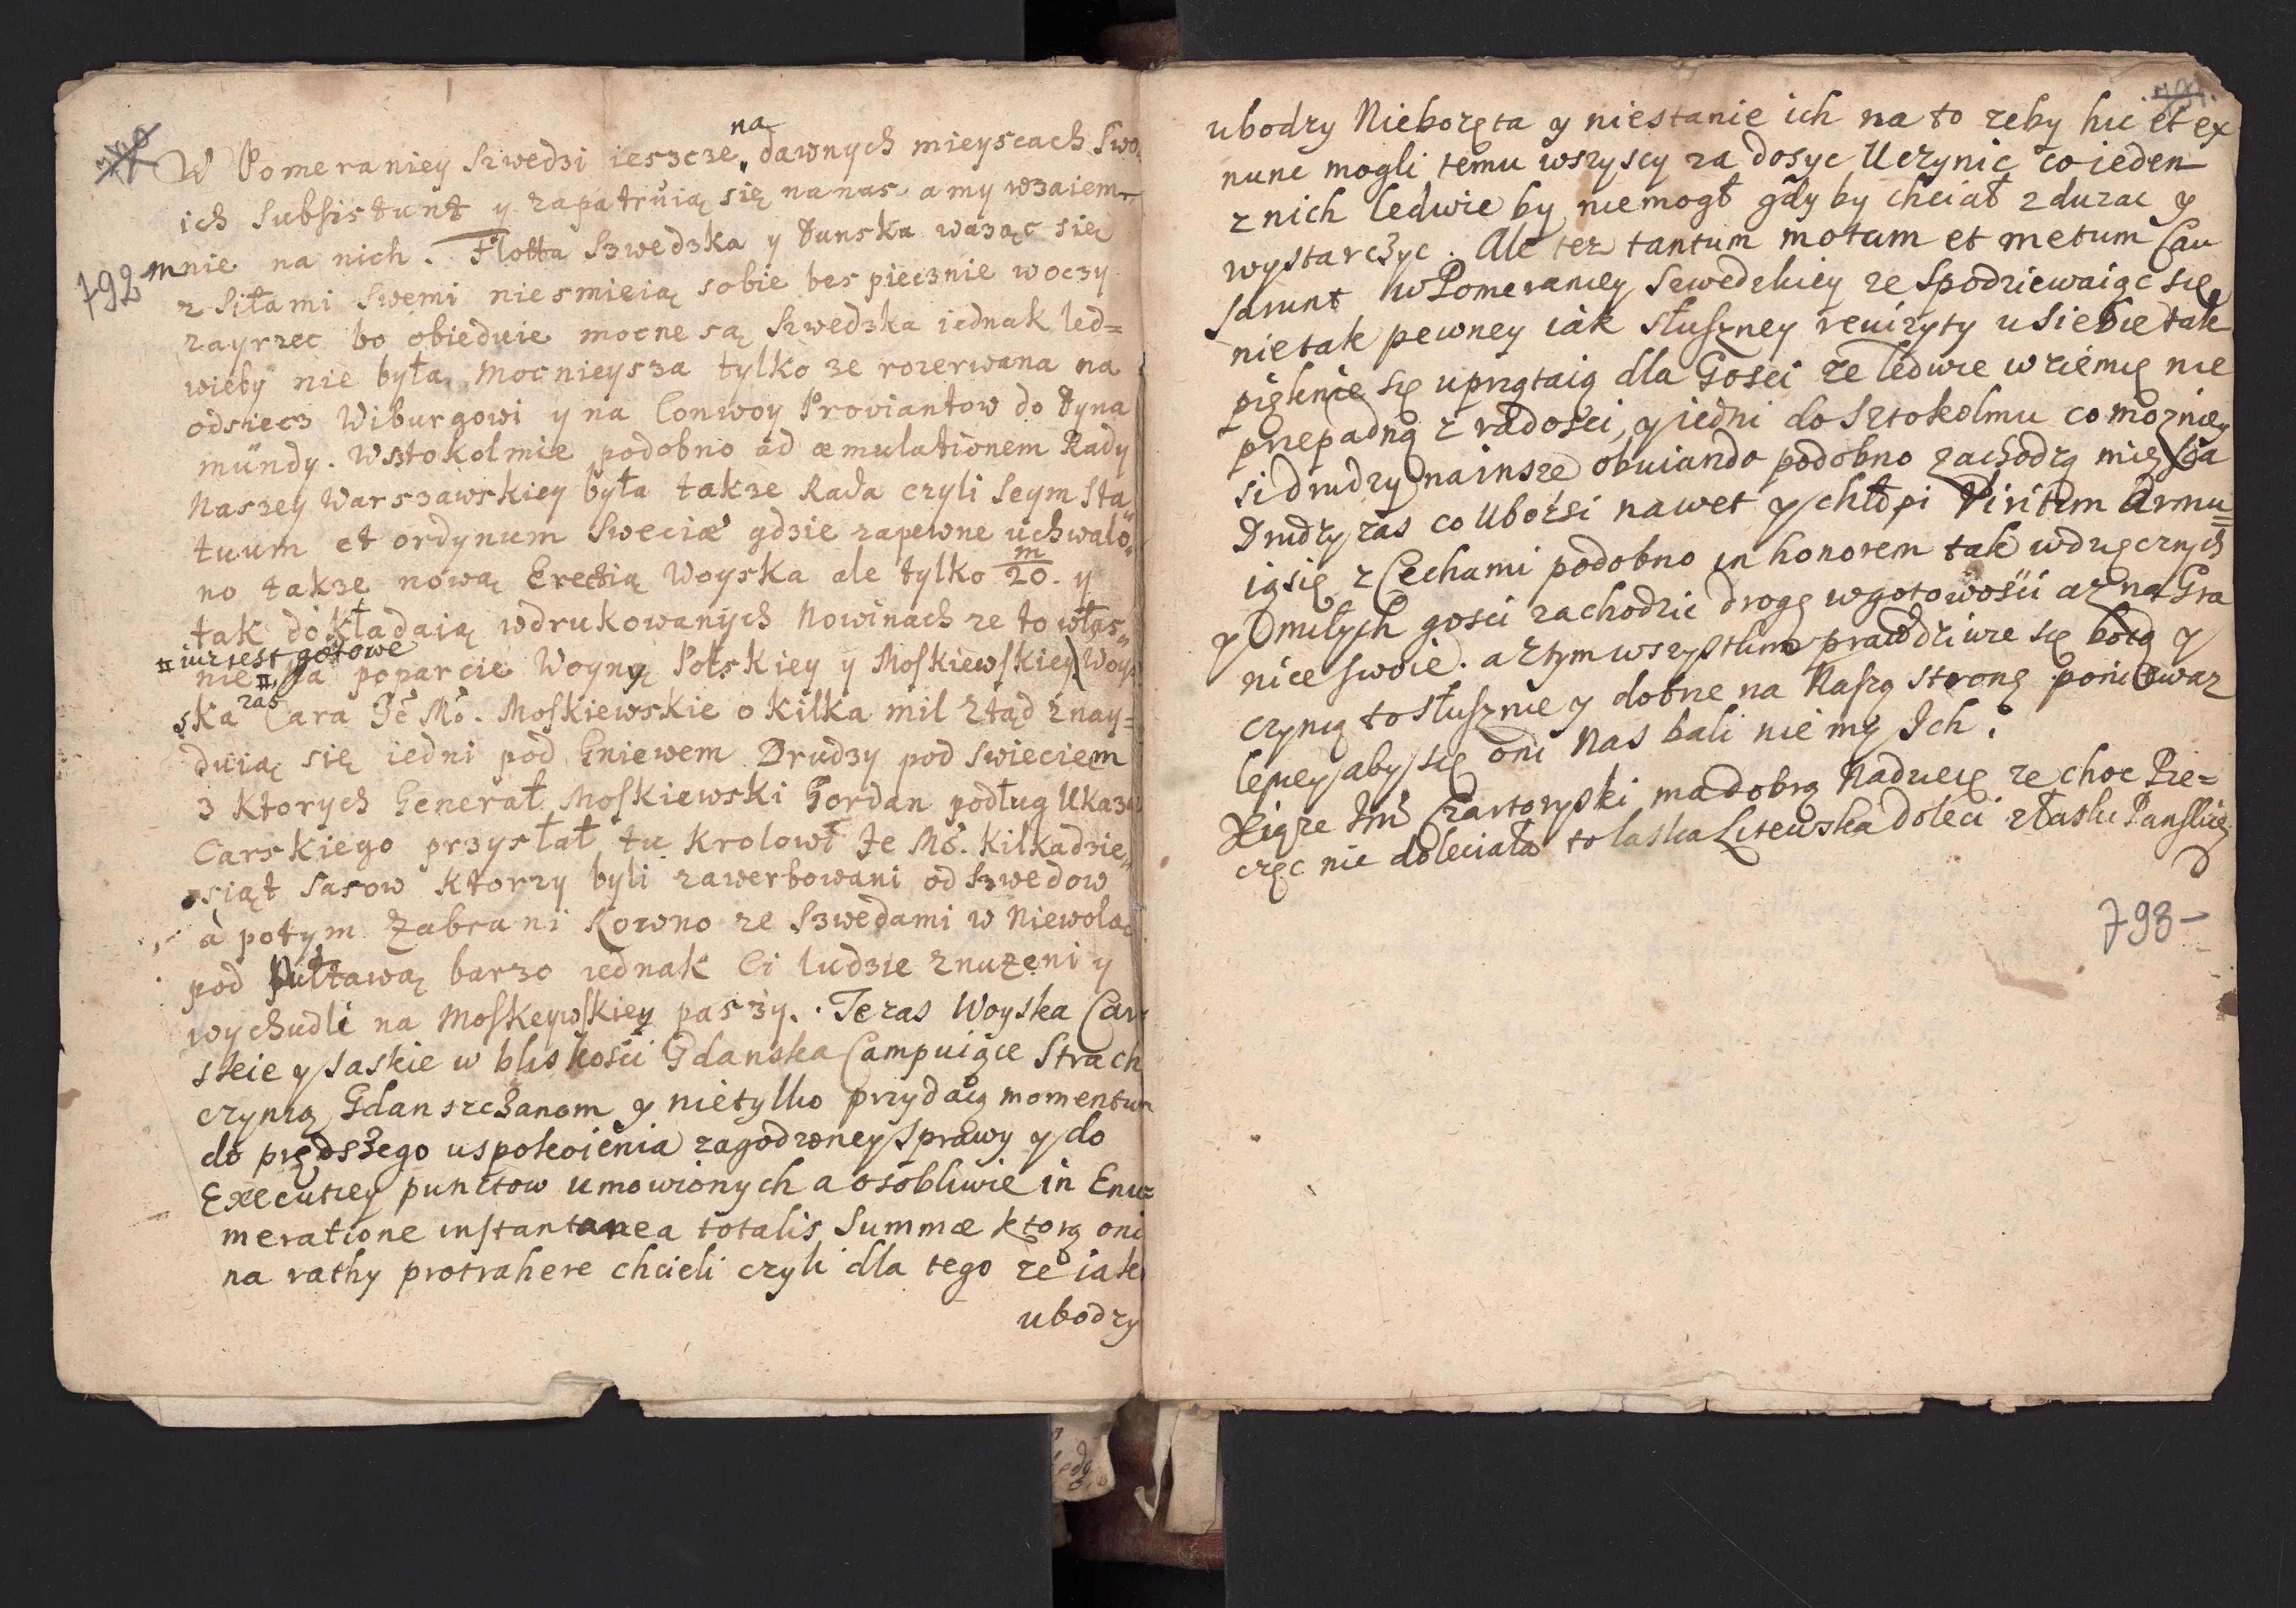 W Pomeraniey Szwedzi ieszcze na dawnych mieyscach Swo„
ich Subsistunt y zapatruią się na nas a my wzaiem„
792 mnie na nich. Flotta Szwedzka y Dunska wazac się
z Siłami Swemi niesmieią sobie bespiecznie w oczy
zayrzec bo obiedwie mocne są Szwedzka iednak led=
wieby nie była Mocnieysza tylko ze rozerwana na
odsiecz Wiburgowi y na Conwoy Proviantow do Dyna
mündy. Wsztokolmie podobno ad æmulationem Rady
Naszey Warszawskiey była takze Rada czyli Seym Sta„
tuum et ordynum Sweciæ gdzie zapewne uchwalo„
no takze nową Erectią Woyska ale tylko m/20. y
tak dokładaią wdrukowanych Nowinach ze to włas„
# iuz iest gotowe
nie # na poparcie Woyny Polskiey y Moskiewskiey) Woy„
ska zas Cara Je Mo. Moskiewskie o kilka mil ztąd znay=
duią się iedni pod Gniewem Drudzy pod Swieciem
z Ktorych Generał Moskiewski Gordan podług Ukazu
Carskiego przysłał tu Krolowi Je Mo. Kilkadzie„
siąt Sasow Ktorzy byli zawerbowani od Szwedow
a potym Zabrani Rowno ze Szwedami w Niewolą
pod Pułtawą barzo iednak Ci ludzie znuzeni y
wychudli na Moskeywskiey paszy. Teras Woyska Car
skie y Saskie w bliskosci Gdanska Campuiące Strach
czynią Gdanszczanom y nietylko przydaią momentum
do prędszego uspokoienia zagodzoney sprawy y do
Executiey punctow umowionych a osobliwie in Enu=
meratione instantanea totalis Summæ ktorą oni
na rathy protrahere chcieli czyli dla tego ze iak
ubodzy
ubodzy Nieboręta y niestanie ich na to zeby hic et ex
nunc mogli temu wszyscy za dosyc Uczynic co ieden
z nich ledwie by niemogł gdy by chciał zduzac y
wystarczyc. Ale tez tantum motum et metum Cau
sarunt w Pomeraniey Szwedzkiey ze Spodziewaiąc się
nietak pewney iak słuszney revizyty u siebie tak
pięknie się uprzątaią dla Gosci ze ledwie w ziemię nie
przepadną z radości, y iedni do Sztokolmu co moznieÿ
si drudzy na insze obuiando podobno zachodzą mieysca
Drudzy zas co Ubozsi nawet y chłopi Viritim armu=
ią się z Cechami podobno in honorem tak wdzięcznych
y miłych gosci zachodzic drogę w gotowosci az na Gra
nice swoie. a z tym wszystkim prawdziwie się boią y
czynią to słusznie y dobrze na Naszą stronę poniewaz
lepiey aby się oni Nas bali nie my Ich.
Xiąze Jmc Czartoryski ma dobrą Nadzieię ze choc Pie=
częc nie doleciała to laska Litewska doleci z łaski Panskiey
798